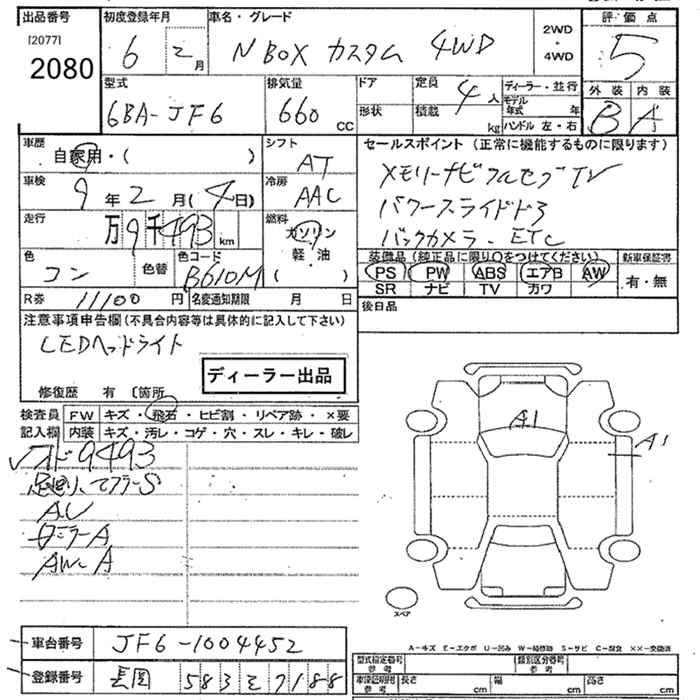 出品番号
[2077]
2080
初度登録年月
6 2月
車名・グレード
N BOX カスタム 4WD
2WD
・
4WD
評価点
5
型式
6BA-JF6
排気量
660 CC
ドア
形状
定員
4人
積載
kg
ディーラー・並行
モデル年式 年
ハンドル 左・右
外装 内装
B A
車歴
自家用・( )
シフト
AT
セールスポイント(正常に機能するものに限ります)
メモリーナビ フルセグTV
パワースライドドア
バックカメラ、ETC
車検
9年2月(4日)
冷房
AAC
走行
万9千493km
燃料
ガソリン
・
軽・油
( )
色
コン
色替
色コード
B610M
装備品(純正品に限り○をつけてください)
PS PW ABS エアB AW
SR ナビ TV カワ
新車保証書
有・無
R券 11100円
名変通知期限 月 日
後日品
注意事項申告欄(不具合内容等は具体的に記入して下さい)
LEDヘッドライト
ディーラー出品
修復歴 有 〔箇所
検査員
記入欄
FW キズ・飛石・ヒビ割・リペア跡・×要
内装 キズ・汚レ・コゲ・穴・スレ・キレ・破レ
9493
マフラーS
AU
ミラーA
AW-A
A1
A1
スペア
車台番号 JF6-1004452
登録番号 長岡 583 
A-キズ E-エクボ U-凹み W-補修跡 S-サビ C-腐食 ××-交換済
型式指定番号
参考
類別区分番号
参考
車検証明用
参考
長さ cm
幅 cm
高さ cm